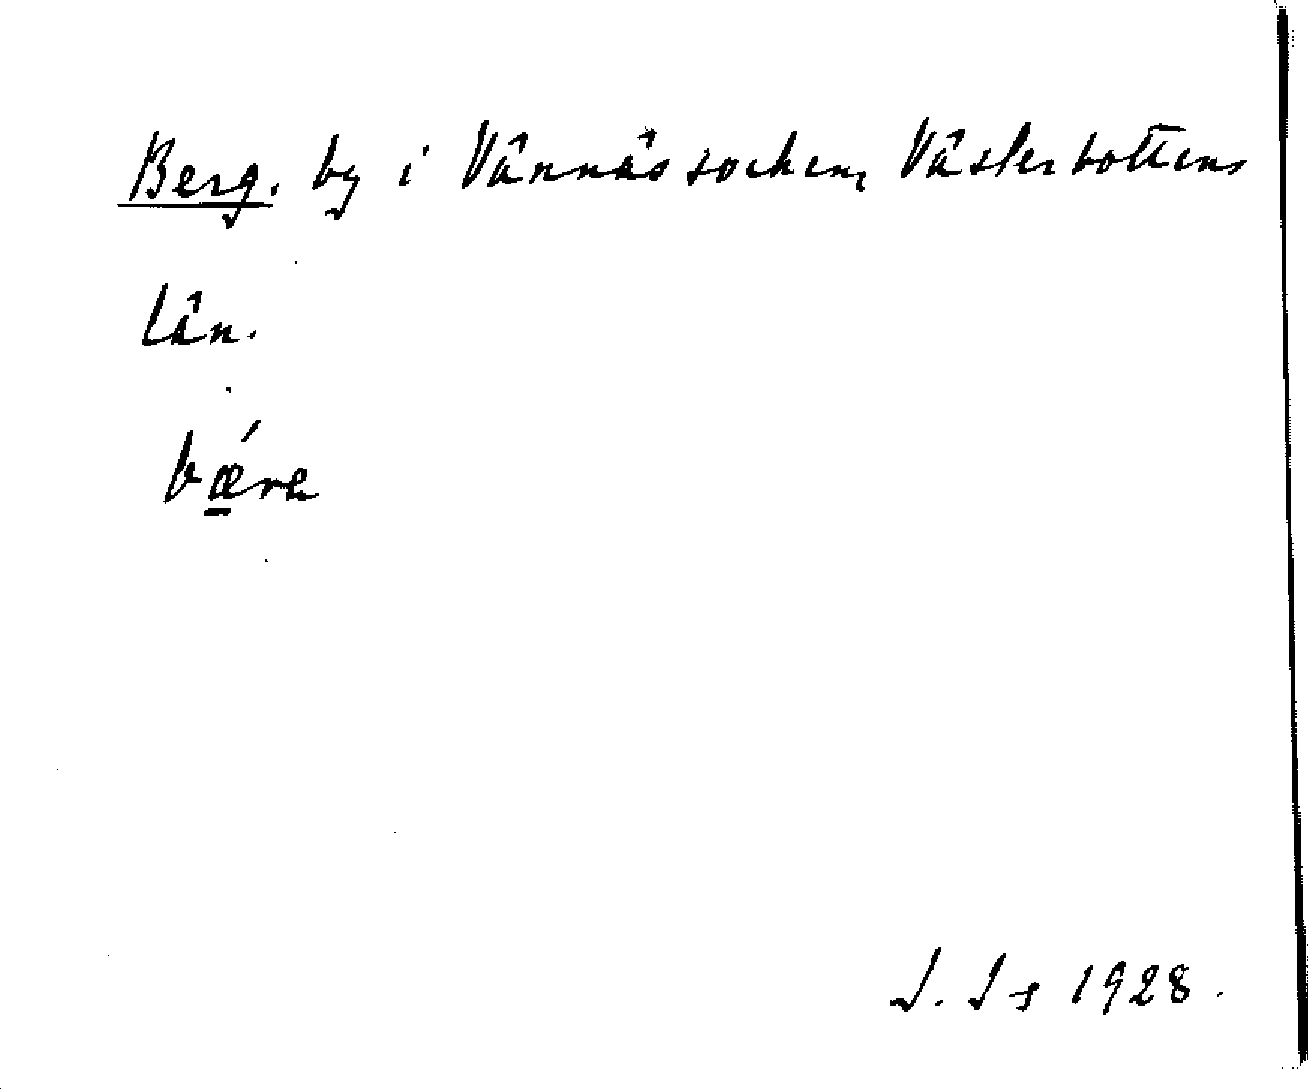 Berg. by i Vännäs socken, Västerbottens
län.
bǽra
J. J-s 1928.